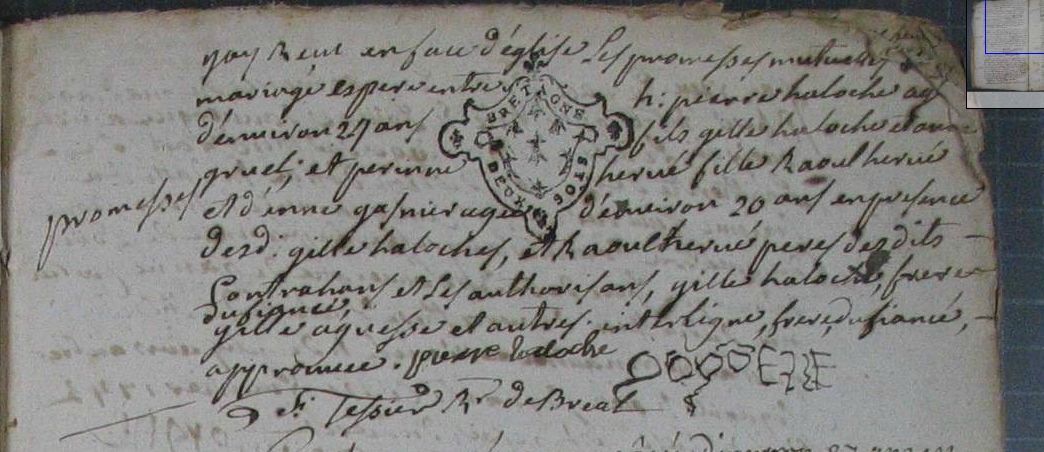 jay Receu en face d'église Les promesses mutuelles
mariage espere entre h: pierre haloche agé
d'environ 27 ans fils gille haloche et anne
gruel; et perinne hervé fille Raoul hervé
BRETAGNE
DEUX S
promesses et d'enne gasnier agée d'environ 20 ans en presence
desd. gille haloches, et Raoul hervé peres desdits
Contrahans et Les authorisans, gille haloche, frere
du fiancé,
gille aguesse et autres. interligne, frere, du fiancé,
approuvée. pierre haloche
F: Tessier Rr de Breal